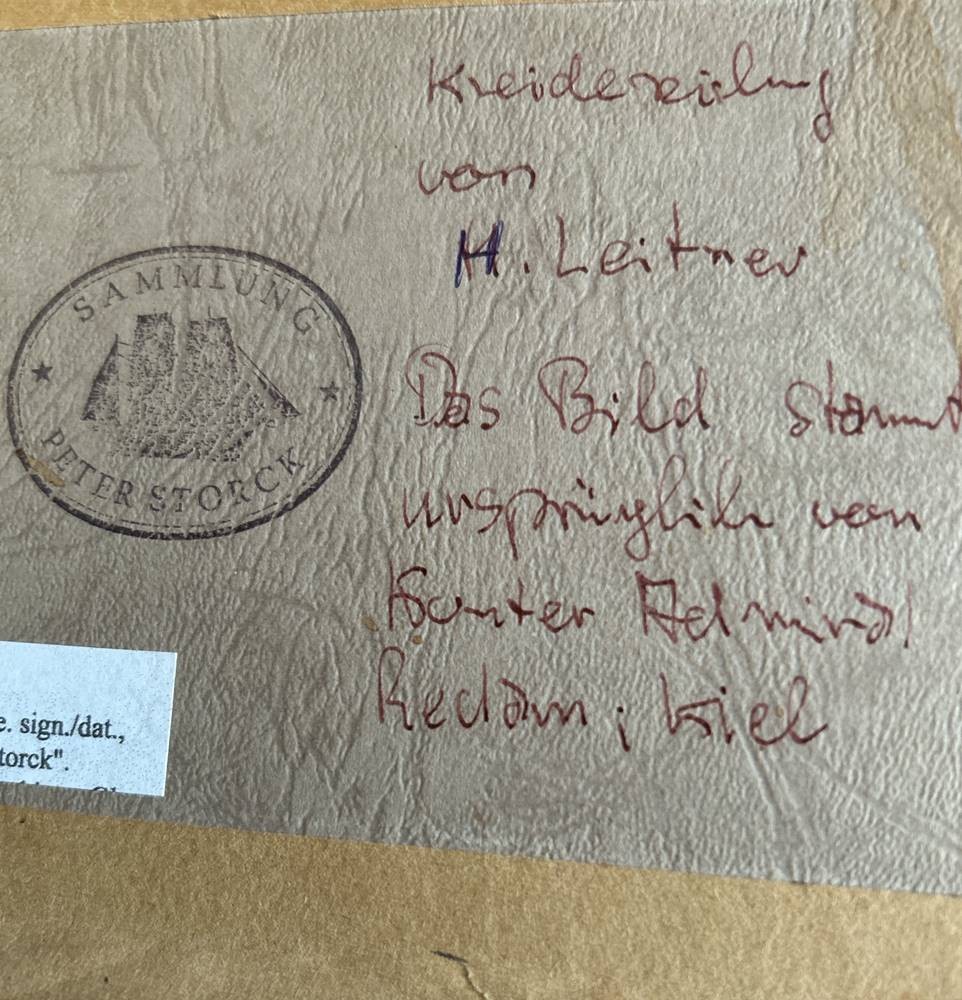 Kreidezeichnung
von
H. Leitner
SAMMLUNG
PETER STORCK
Das Bild stammt
ursprünglich von
Konter Admiral
Reclam; Kiel
e. sign./dat.,
torck".